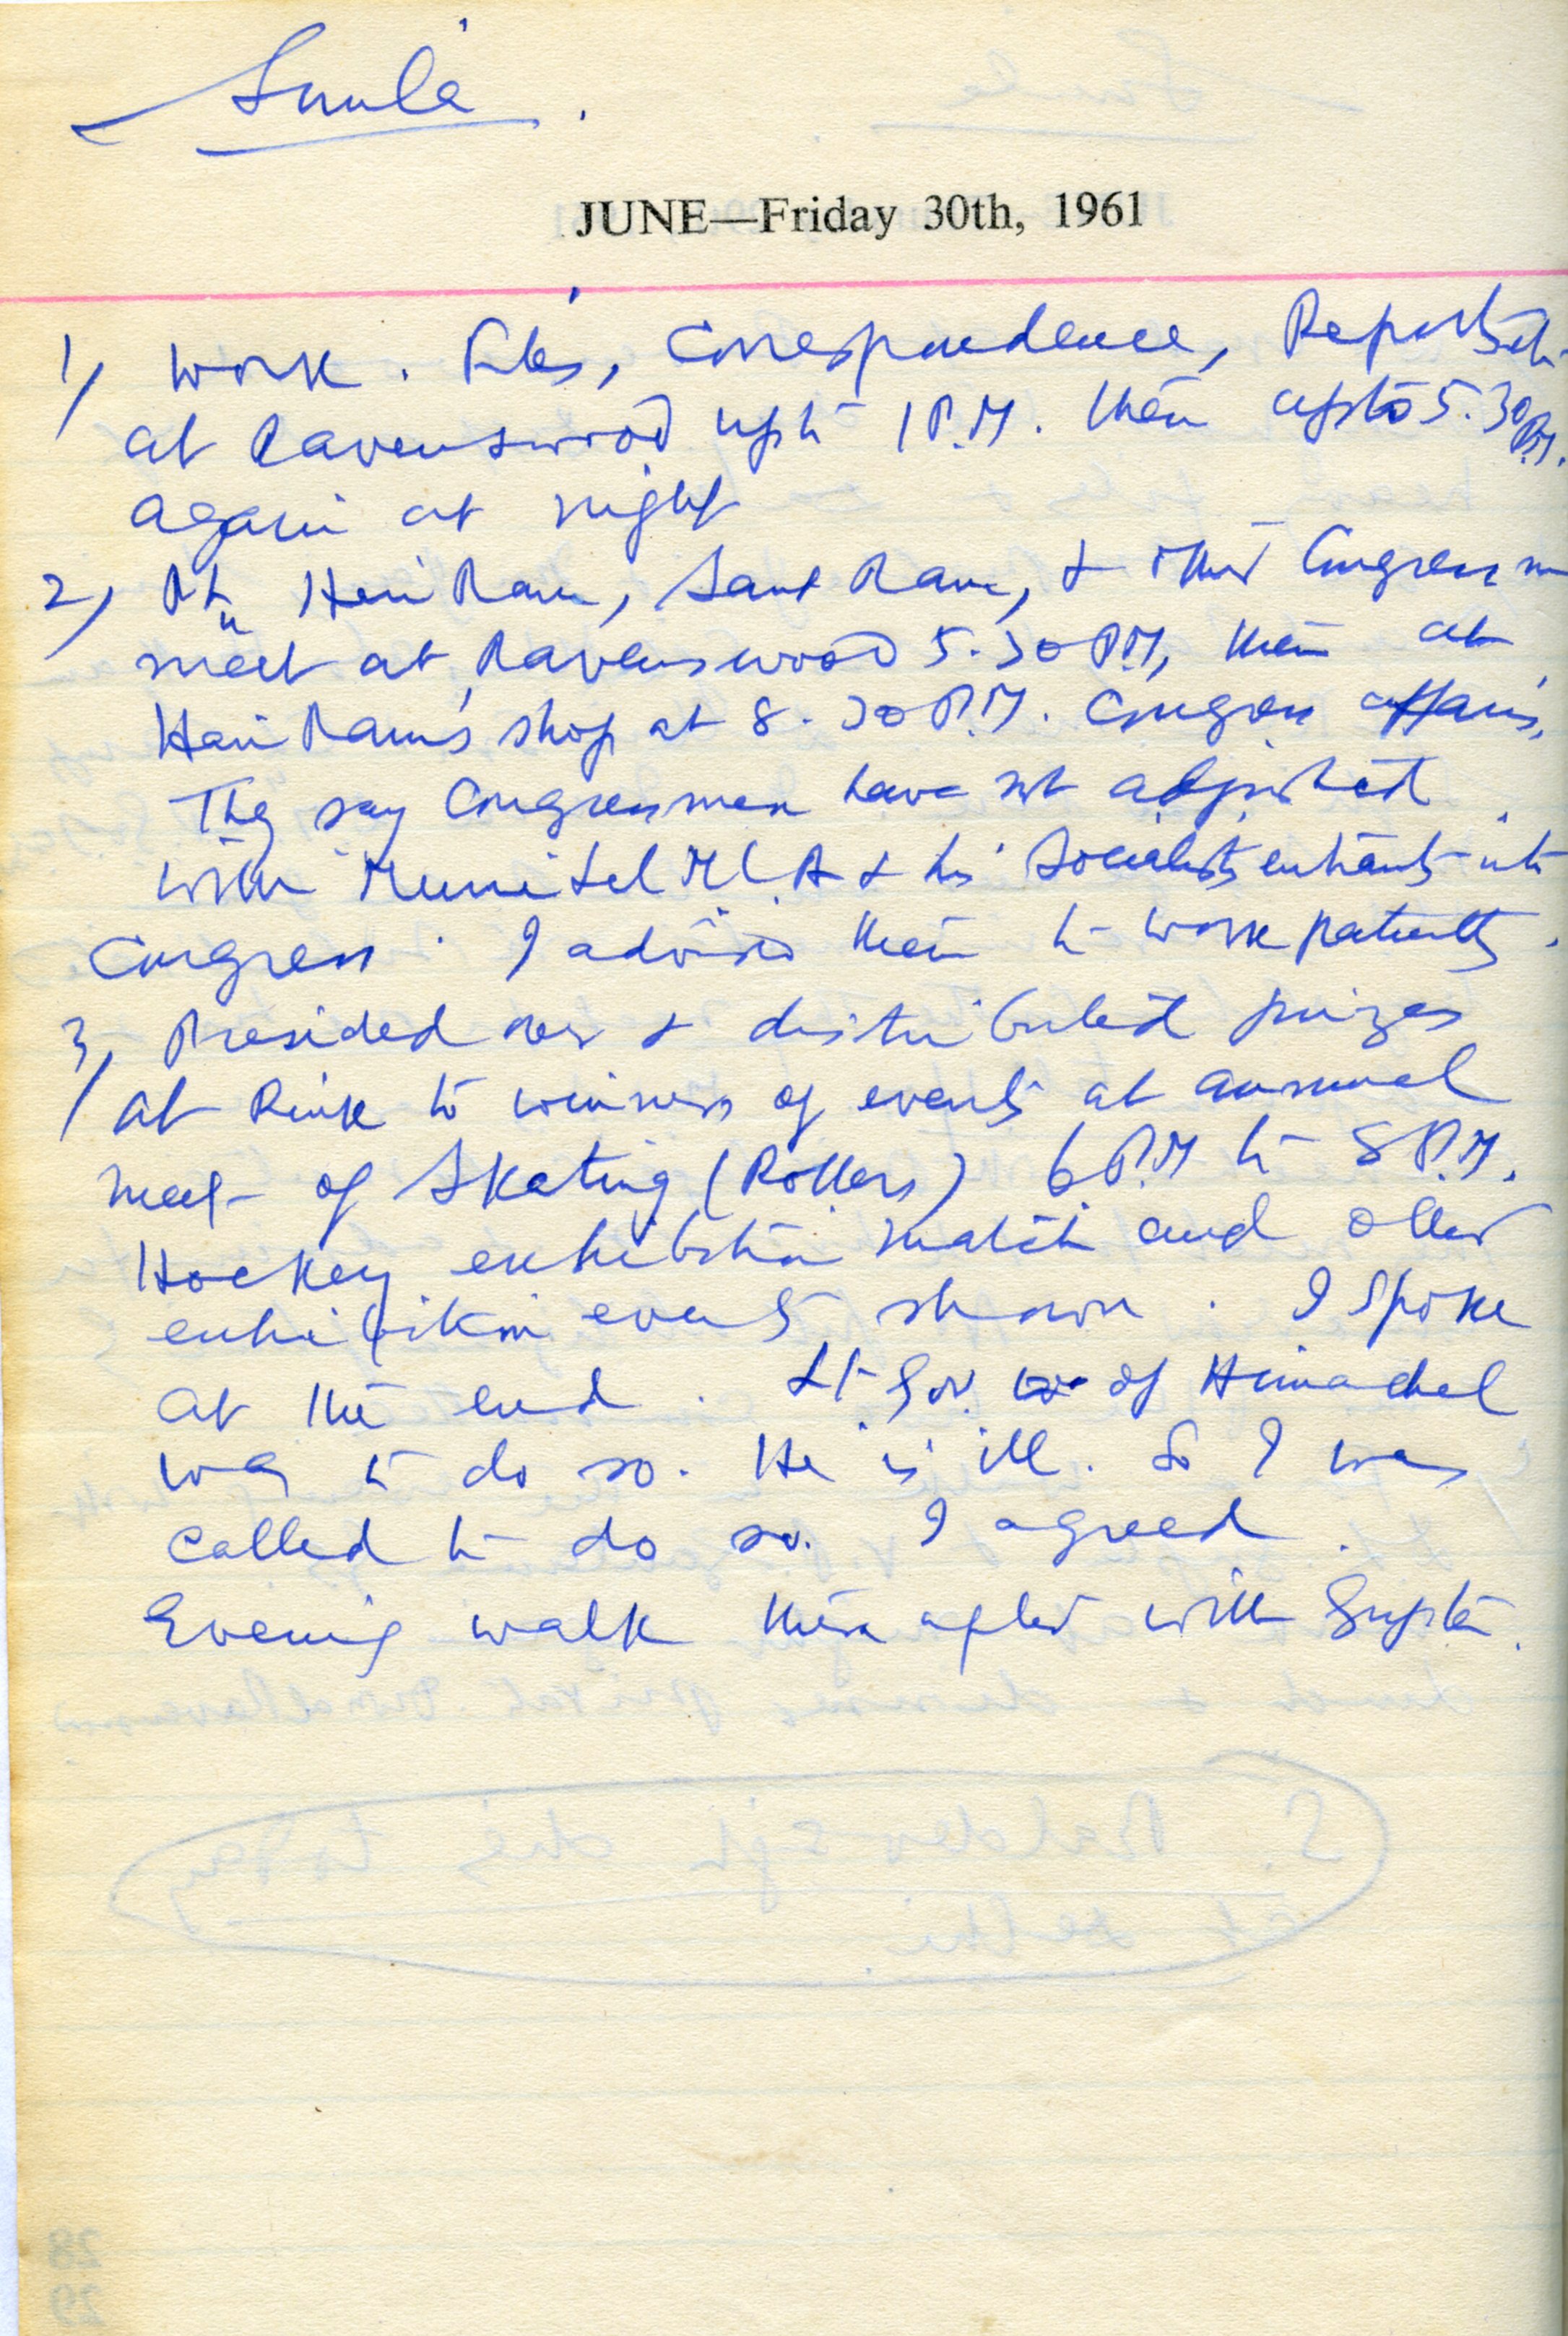 Simla.
JUNE—Friday 30th, 1961
1) Work. Files, Correspondence, Reports etc.
at Ravenswood upto 1 P.M. then upto 5.30 P.M.
again at night
2) Pt. Hari Ram, Sant Ram, & other Congressmen
meet at Ravenswood 5.30 P.M, then at
Hari Ram's shop at 8.30 P.M. Congress affairs.
They say Congressmen have not adjusted
with MLA & his Socialists entrants into
Congress. I advised them to work patiently.
3) Presided over & distributed prizes
at Rink to winners of events at annual
meet of Skating (Rollers) 6 P.M to 8 P.M.
Hockey exhibition match and other
exhibition events shown. I spoke
at the end. Lt Gov. of Himachal
was to do so. He is ill. So I was
called to do so. I agreed.
Evening walk thereafter with Gupta.